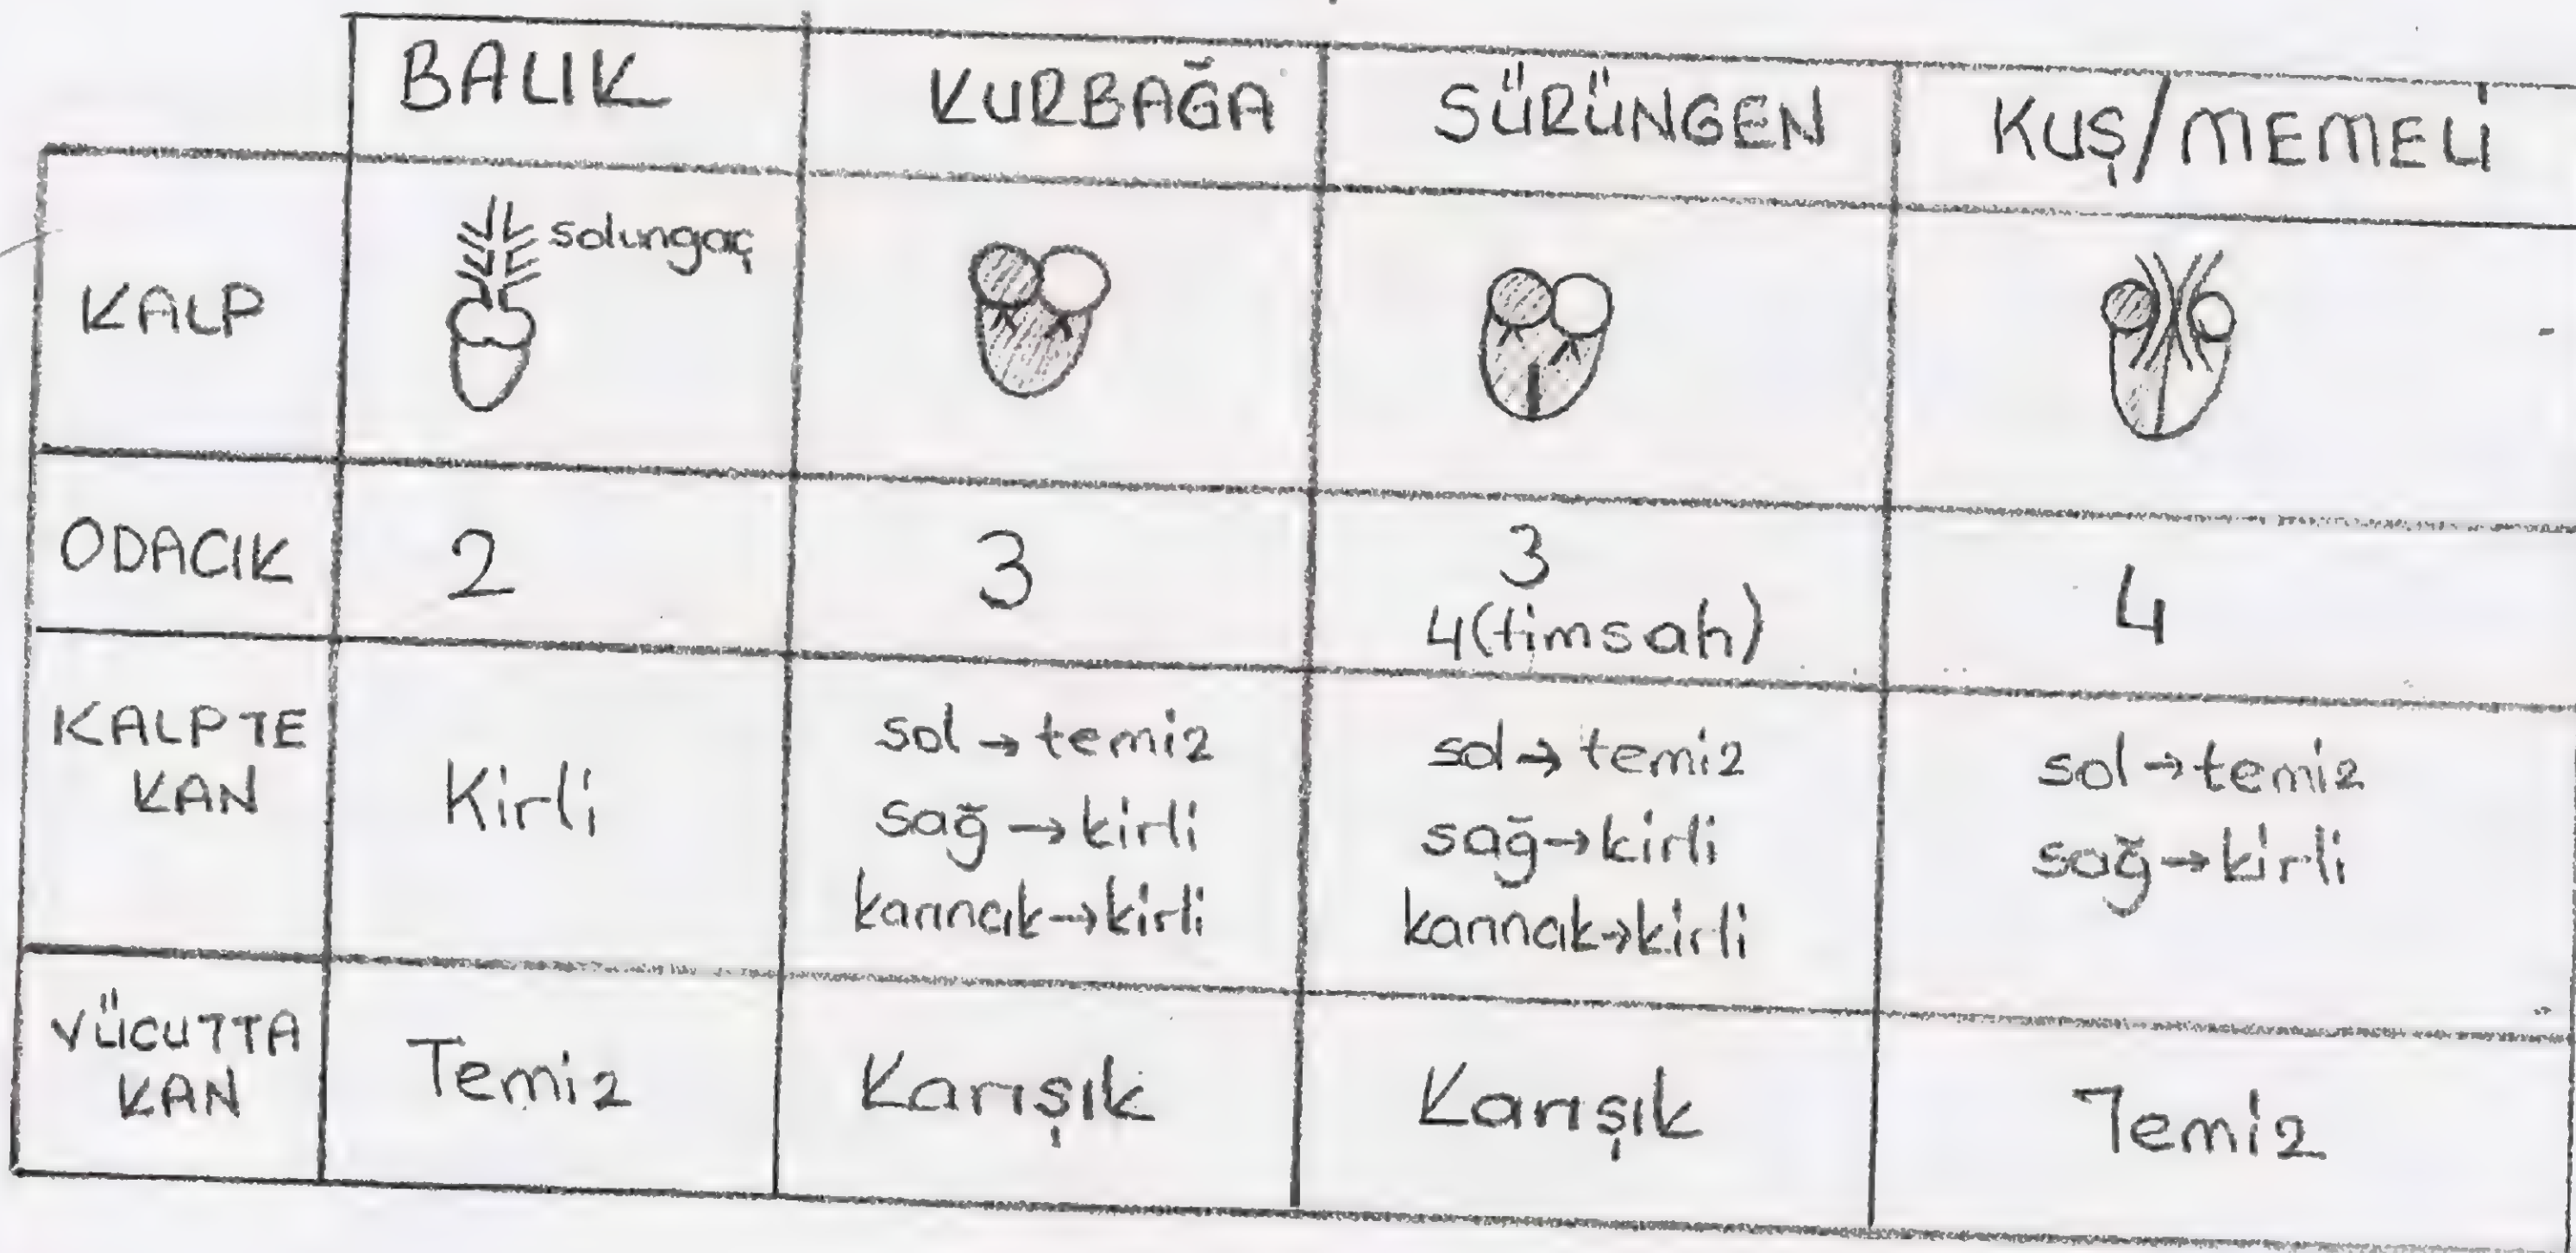 BALIK KURBAĞA SÜRÜNGEN KUŞ/MEMELİ
KALP solungaç
ODACIK 2 3 3 4
4(timsah)
KALPTE KAN Kirli sol→temiz sağ→kirli karıncık→kirli sol→temiz sağ→kirli karıncık→kirli sol→temiz sağ→kirli
VÜCUTTA KAN Temiz Karışık Karışık Temiz